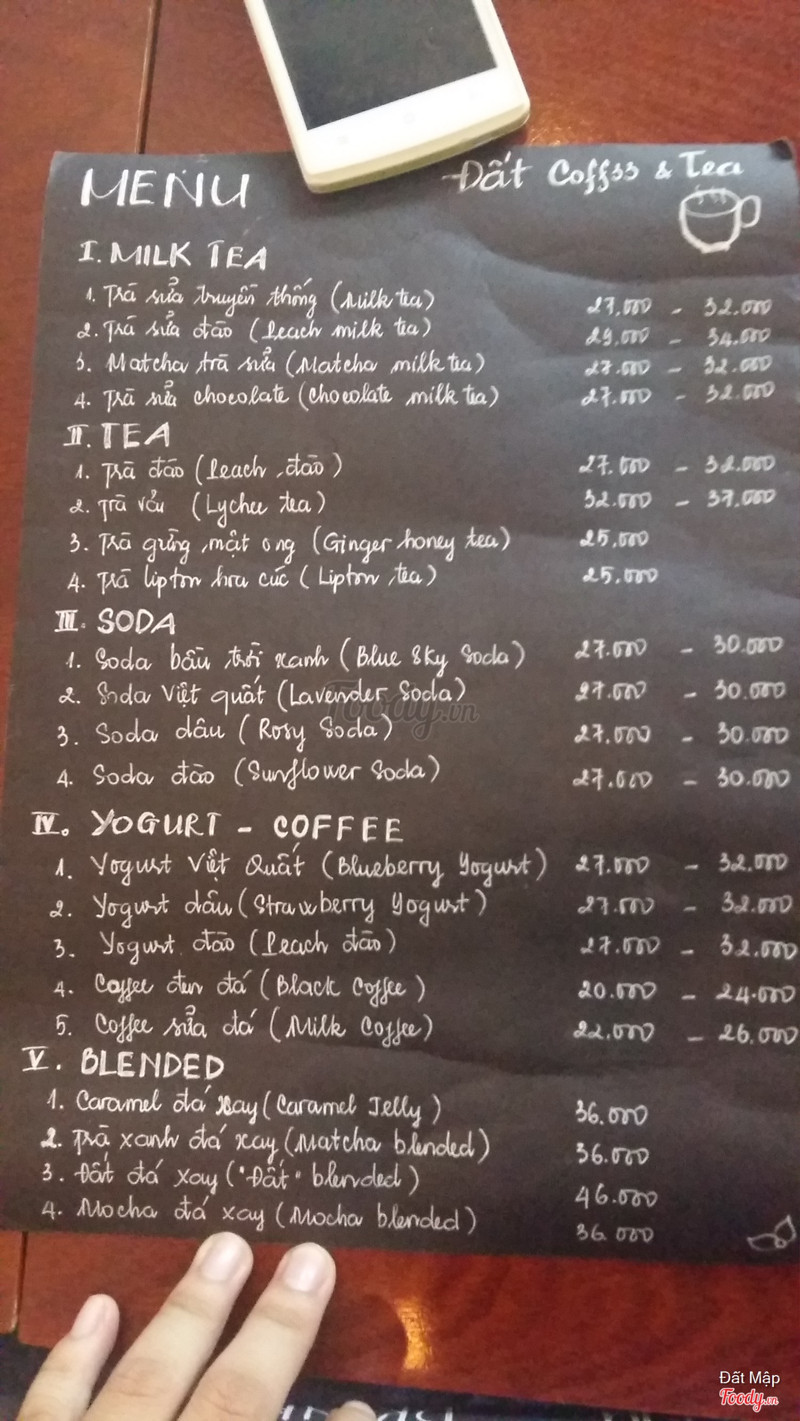 MENU Đất Coffss & Tea
I. MILK TEA
1. Trà sửa truyền thống (Milk tea) 27.000 - 32.000
2. Trà sửa đào (Peach milk tea) 29.000 - 34.000
3. Matcha trà sửa (Matcha milk tea) 27.000 - 32.000
4. Trà sửa chocolate (Chocolate milk tea) 27.000 - 32.000
II. TEA
1. Trà đào (Peach đào) 27.000 - 32.000
2. Trà vải (Lychee tea) 32.000 - 37.000
3. Trà gừng mật ong (Ginger honey tea) 25.000
4. Trà lipton hoa cúc (Lipton tea) 25.000
III. SODA
1. Soda bầu trời xanh (Blue Sky Soda) 27.000 - 30.000
2. Soda Việt quất (Lavender Soda) 27.000 - 30.000
Foody.vn
3. Soda dâu (Rosy Soda) 27.000 - 30.000
4. Soda đào (Sunflower Soda) 27.000 - 30.000
IV. YOGURT - COFFEE
1. Yogurt Việt Quất (Blueberry Yogurt) 27.000 - 32.000
2. Yogurt dâu (Strawberry Yogurt) 27.000 - 32.000
3. Yogurt đào (Peach đào) 27.000 - 32.000
4. Coffee đen đá (Black Coffee) 20.000 - 24.000
5. Coffee sửa đá (Milk Coffee) 22.000 - 26.000
V. BLENDED
1. Caramel đá xay (Caramel Jelly) 36.000
2. Trà xanh đá xay (Matcha blended) 36.000
3. Đất đá xay ("Đất" blended) 46.000
4. Mocha đá xay (Mocha blended) 36.000
Đất Mập
Foody.vn